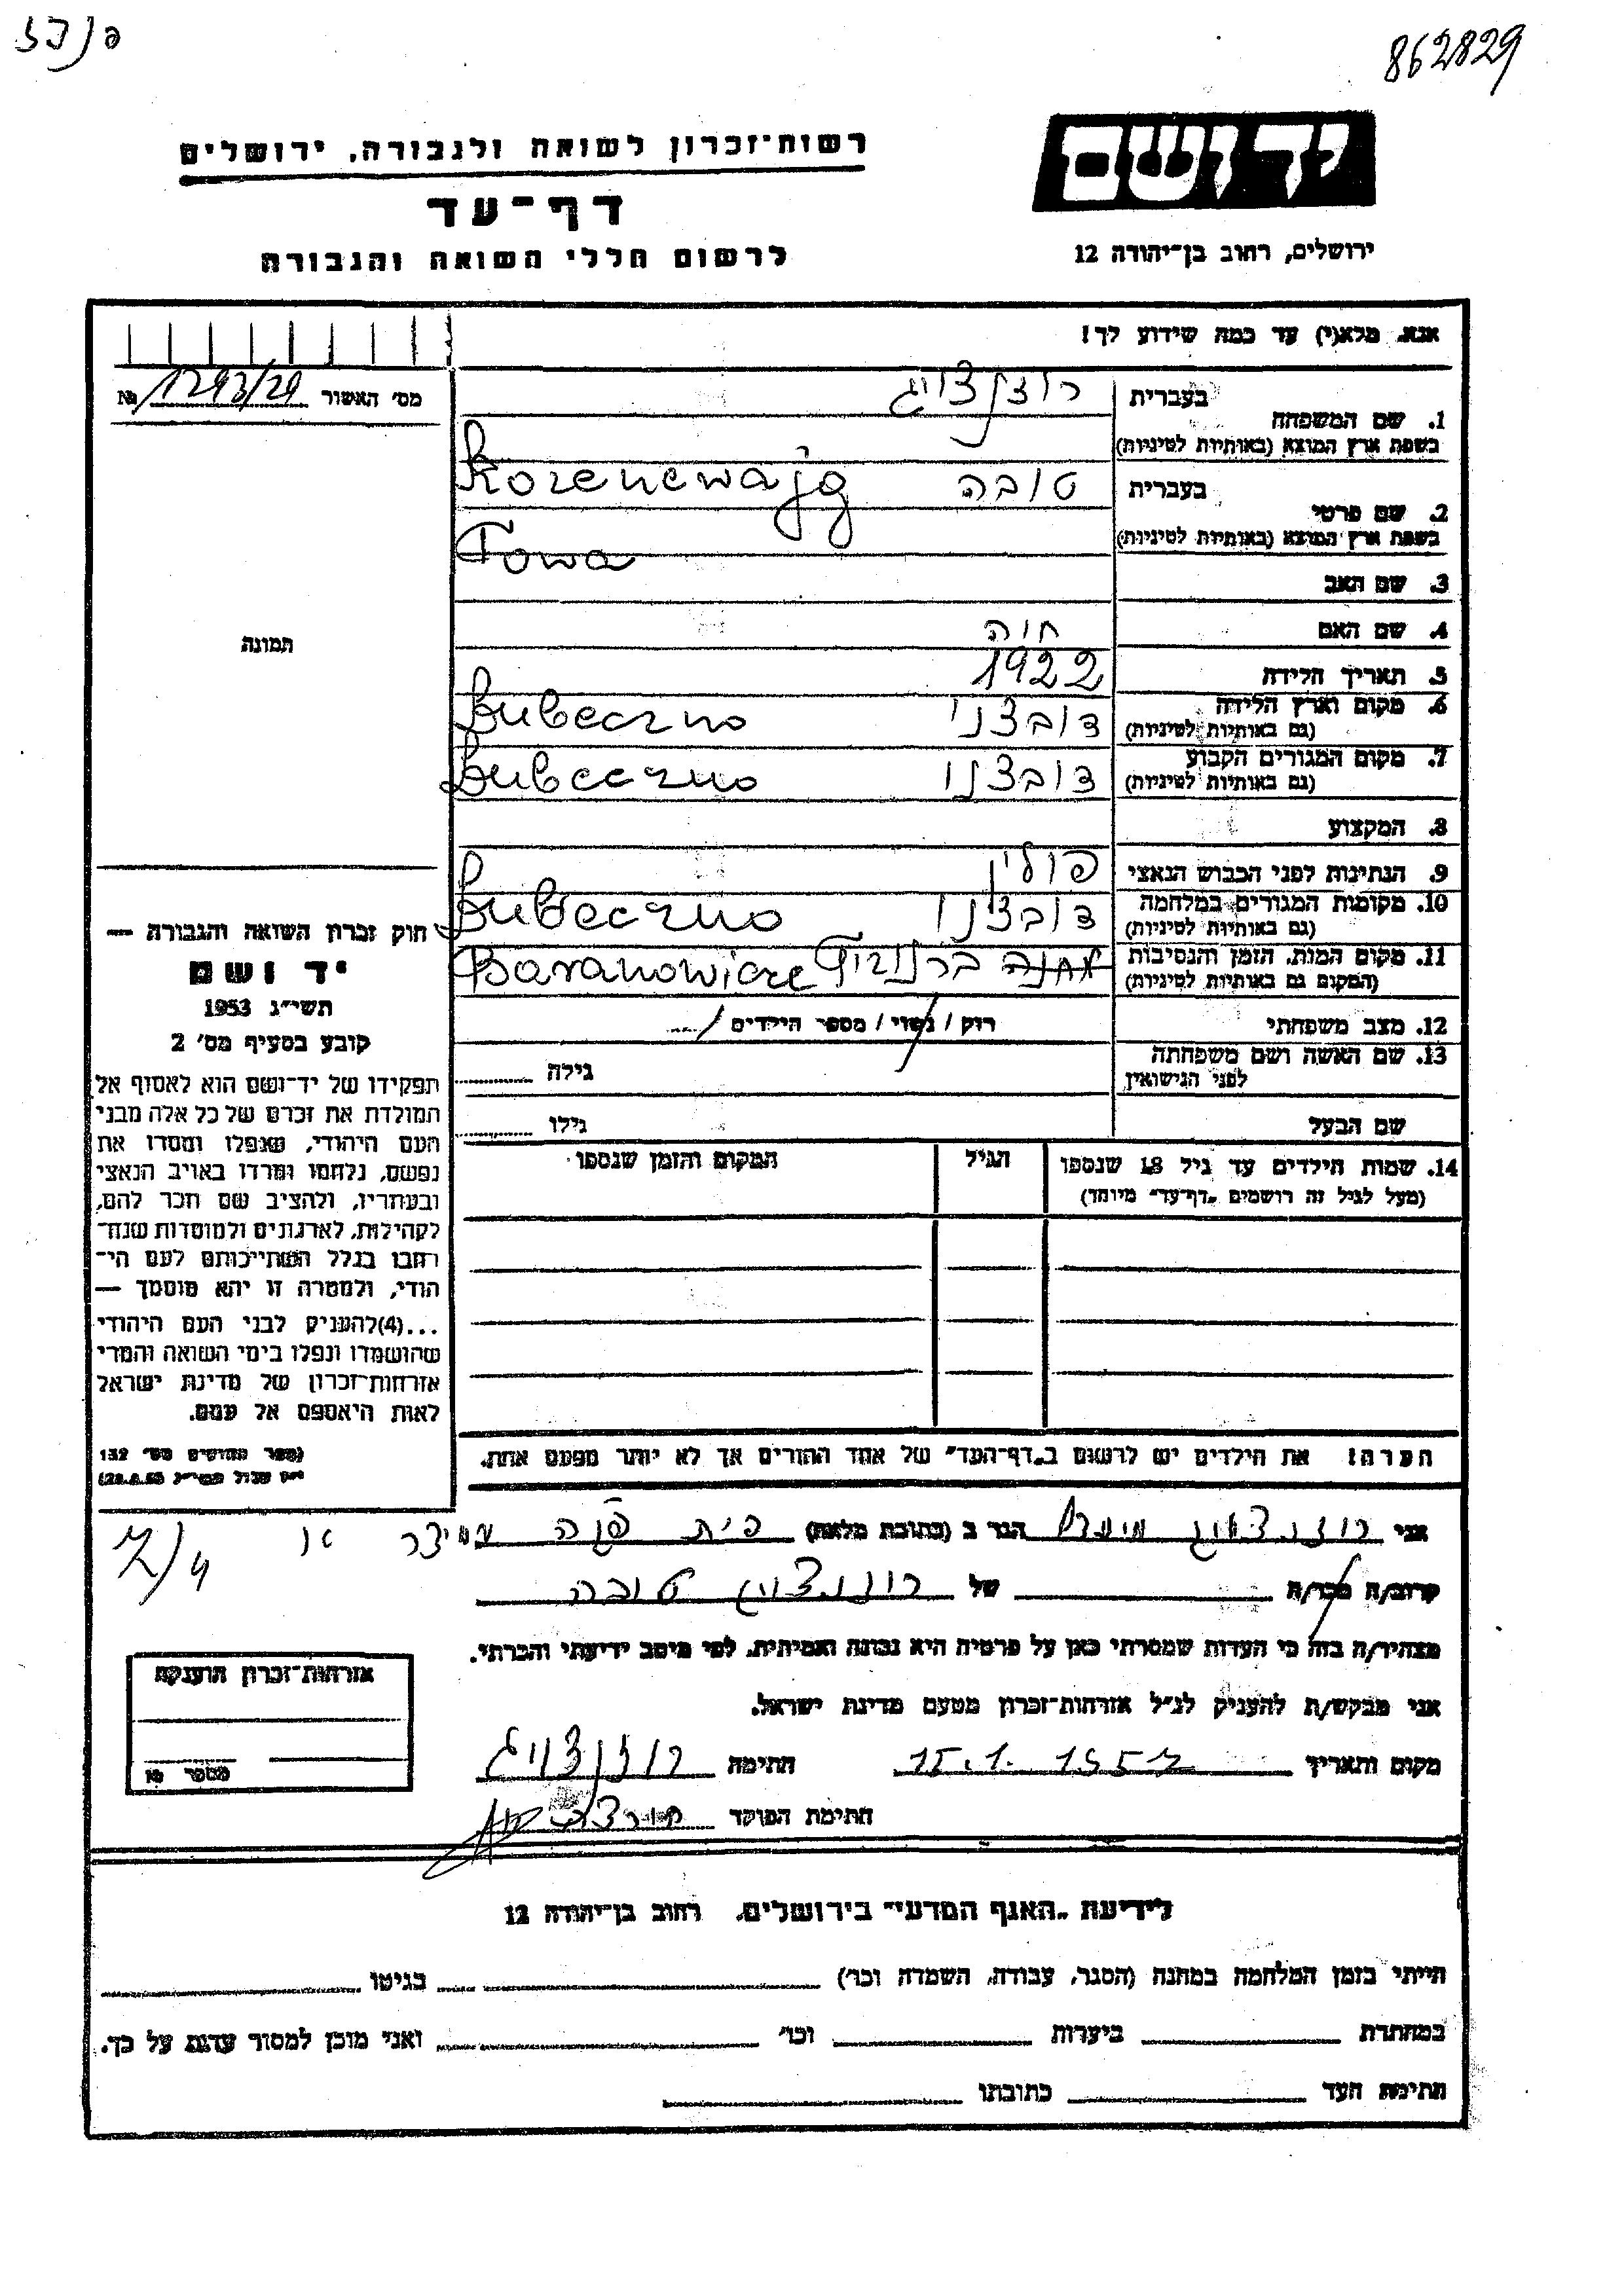 862829
יד ושם
ירושלים, רחוב בן־יהודה 12
רשות־זכרון לשואה ולגבורה, ירושלים
דף־עד
לרשום חללי השואה והגבורה
אנא, מלא(י) עד כמה שידוע לך!
מס׳ האשור 1293/29 №
תמונה
1. שם המשפחה
בעברית רוזנצויג
בשפת ארץ המוצא (באותיות לטיניות)
Rozencwajg
2. שם פרטי
בעברית טובה
בשפת ארץ המוצא (באותיות לטיניות)
Towa
3. שם האב
4. שם האם חוה
5. תאריך הלידה 1922
6. מקום וארץ הלידה דובצנו
(גם באותיות לטיניות) Dubeczno
7. מקום המגורים הקבוע דובצנו
(גם באותיות לטיניות) Dubeczno
8. המקצוע
9. הנתינות לפני הכבוש הנאצי פולין
10. מקומות המגורים במלחמה דובצנו
(גם באותיות לטיניות) Dubeczno
11. מקום המות, הזמן והנסיבות
(המקום גם באותיות לטיניות) Baranowicze
12. מצב משפחתי רוק / נשוי / מספר הילדים /
13. שם האשה ושם משפחתה
לפני הנישואין גילה
שם הבעל גילו
14. שמות הילדים עד גיל 18 שנספו
(מעל לגיל זה רושמים „דף־עד״ מיוחד)
הגיל
המקום והזמן שנספו
חוק זכרון השואה והגבורה —
יד ושם
תשי״ג 1953
קובע בסעיף מס׳ 2
תפקידו של יד־ושם הוא לאסוף אל
המולדת את זכרם של כל אלה מבני
העם היהודי, שנפלו ומסרו את
נפשם, נלחמו ומרדו באויב הנאצי
ובעוזריו, ולהציב שם וזכר להם,
לקהילות, לארגונים ולמוסדות שנח־
רבו בגלל השתייכותם לעם הי־
הודי, ולמטרה זו יהא מוסמך —
...(4)להעניק לבני העם היהודי
שהושמדו ונפלו בימי השואה והמרי
אזרחות־זכרון של מדינת ישראל
לאות היאספם אל עמם.
(ספר החוקים מס׳ 132
הערה! את הילדים יש לרשום ב„דף־העד״ של אחד ההורים אך לא יותר מפעם אחת.
אני רוזנצויג הגר ב (כתובת מלאה)
קרוב/ה מכר/ה של רוזנצויג טובה
מצהיר/ה בזה כי העדות שמסרתי כאן על פרטיה היא נכונה ואמיתית, לפי מיטב ידיעתי והכרתי.
אני מבקש/ת להעניק לנ״ל אזרחות־זכרון מטעם מדינת ישראל.
מקום ותאריך 15.1.1957 חתימה רוזנצויג
חתימת הפוקד
אזרחות־זכרון הוענקה
מספר №
לידיעת „האגף המדעי״ בירושלים, רחוב בן־יהודה 12
הייתי בזמן המלחמה במחנה (הסגר, עבודה, השמדה וכר׳) בגיטו
במחתרת ביערות וכר׳ ואני מוכן למסור עדות על כך.
חתימת העד כתובתו